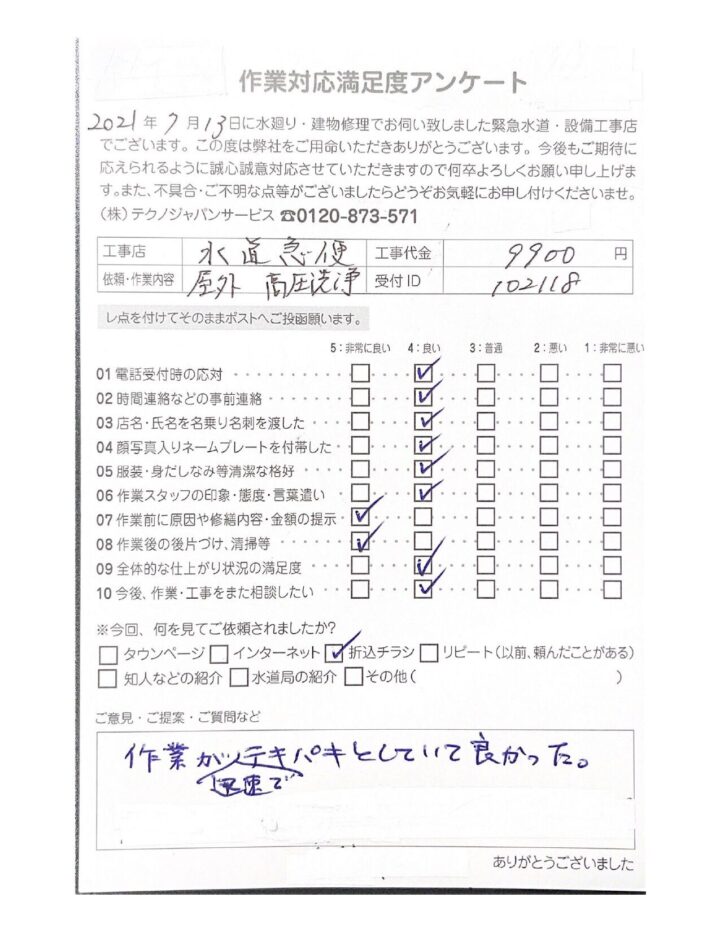 作業対応満足度アンケート
2021年7月13日に水廻り・建物修理でお伺い致しました緊急水道・設備工事店
でございます。この度は弊社をご用命いただきありがとうございます。今後もご期待に
応えられるように誠心誠意対応させていただきますので何卒よろしくお願い申し上げま
す。また、不具合・ご不明な点等がございましたらどうぞお気軽にお申し付けくださいませ。
(株)テクノジャパンサービス ☎0120-873-571
工事店 水道急便 工事代金 9900 円
依頼・作業内容 屋外 高圧洗浄 受付ID 102118
レ点を付けてそのままポストへご投函願います。
5:非常に良い 4:良い 3:普通 2:悪い 1:非常に悪い
01 電話受付時の応対 ······· □ ··· ☑ ··· □ ··· □ ··· □
02 時間連絡などの事前連絡 ···· □ ··· ☑ ··· □ ··· □ ··· □
03 店名・氏名を名乗り名刺を渡した · □ ··· ☑ ··· □ ··· □ ··· □
04 顔写真入りネームプレートを付帯した · □ ··· ☑ ··· □ ··· □ ··· □
05 服装・身だしなみ等清潔な格好 ·· □ ··· ☑ ··· □ ··· □ ··· □
06 作業スタッフの印象・態度・言葉遣い · □ ··· ☑ ··· □ ··· □ ··· □
07 作業前に原因や修繕内容・金額の提示 · ☑ ··· □ ··· □ ··· □ ··· □
08 作業後の後片づけ、清掃等 ··· ☑ ··· □ ··· □ ··· □ ··· □
09 全体的な仕上がり状況の満足度 ·· □ ··· ☑ ··· □ ··· □ ··· □
10 今後、作業・工事をまた相談したい · □ ··· ☑ ··· □ ··· □ ··· □
※今回、何を見てご依頼されましたか?
□ タウンページ □ インターネット ☑ 折込チラシ □ リピート(以前、頼んだことがある)
□ 知人などの紹介 □ 水道局の紹介 □ その他( )
ご意見・ご提案・ご質問など
作業がテキパキとしていて良かった。
迅速で
ありがとうございました